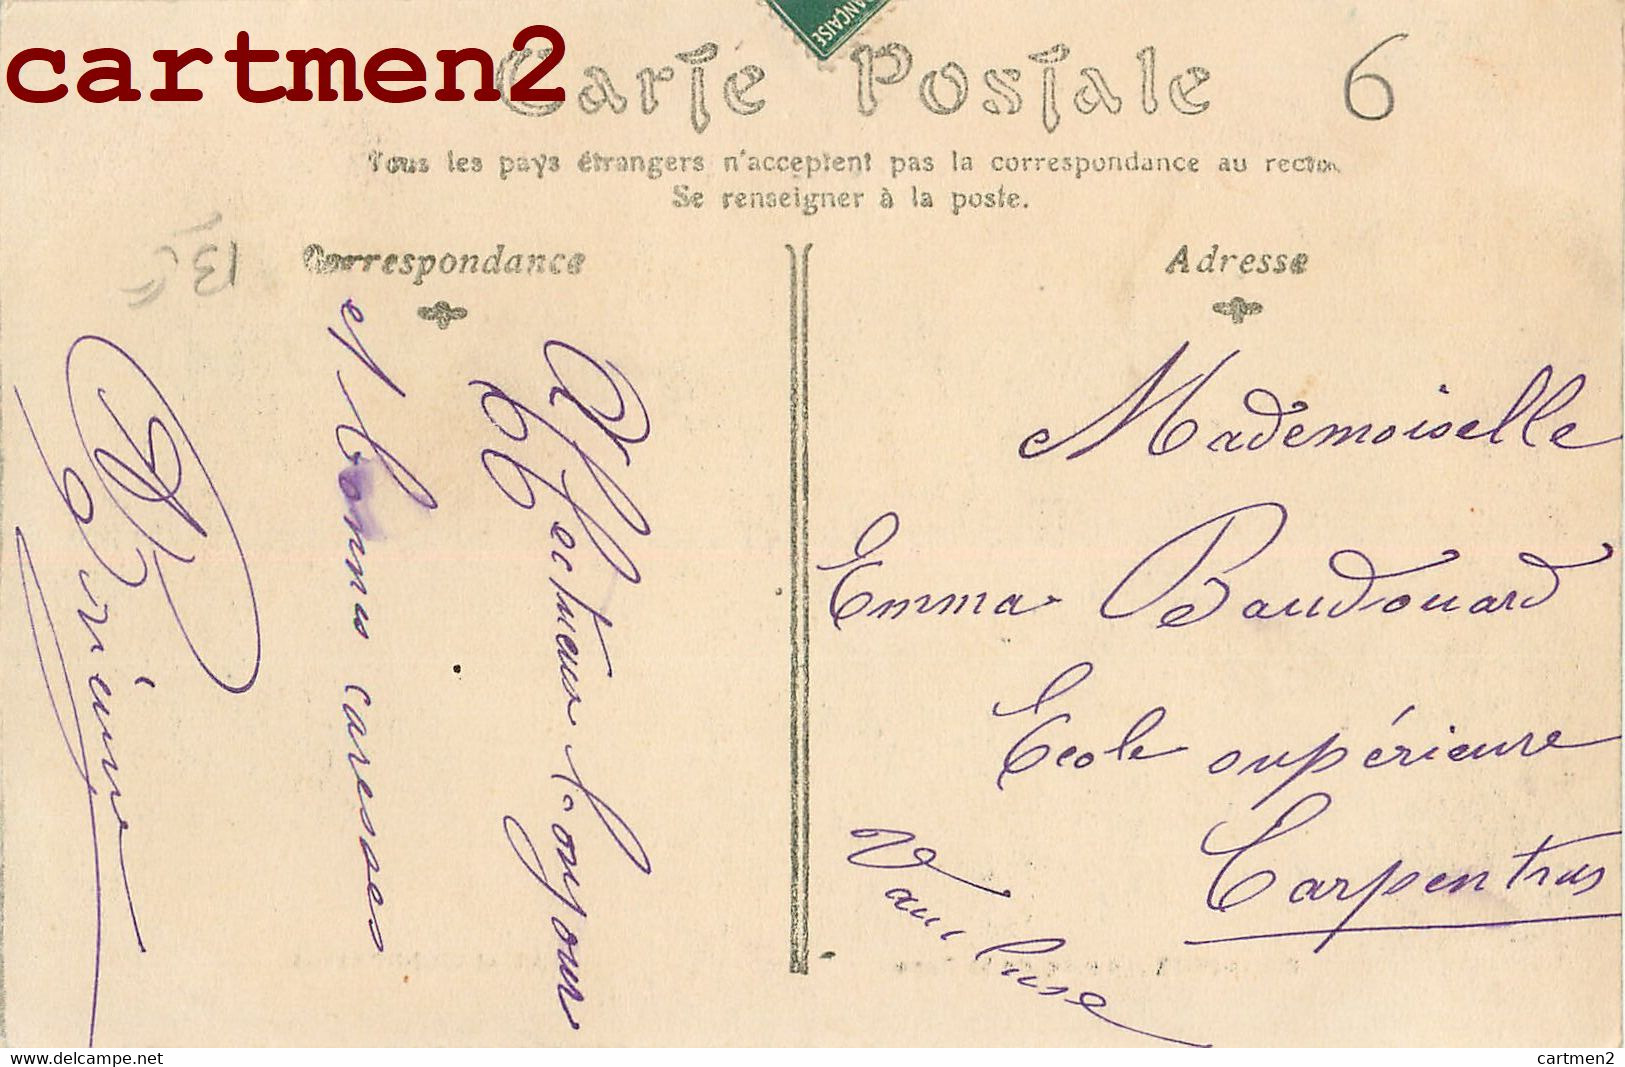 cartmen2
ÇAISE
Carte Postale
6
Tous les pays étrangers n'acceptent pas la correspondance au recto
Se renseigner à la poste.
13
Correspondance
Affectueux bonjour
et bonnes caresses
Adresse
Mademoiselle
Emma Baudouard
Ecole supérieure
Carpentras
Vaucluse
www.delcampe.net
cartmen2